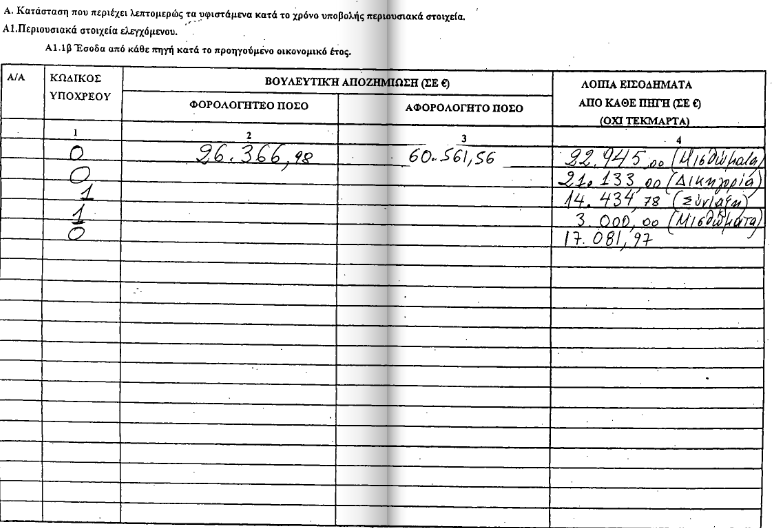 Α. Κατάσταση που περιέχει λεπτομερώς τα υφιστάμενα κατά το χρόνο υποβολής περιουσιακά στοιχεία.
Α1.Περιουσιακά στοιχεία ελεγχόμενου.
Α1.1β Έσοδα από κάθε πηγή κατά το προηγούμενο οικονομικό έτος.
Α/Α ΚΩΔΙΚΟΣ ΥΠΟΧΡΕΟΥ ΒΟΥΛΕΥΤΙΚΗ ΑΠΟΖΗΜΙΩΣΗ (ΣΕ €) ΛΟΙΠΑ ΕΙΣΟΔΗΜΑΤΑ ΑΠΟ ΚΑΘΕ ΠΗΓΗ (ΣΕ €) (ΟΧΙ ΤΕΚΜΑΡΤΑ)
ΦΟΡΟΛΟΓΗΤΕΟ ΠΟΣΟ ΑΦΟΡΟΛΟΓΗΤΟ ΠΟΣΟ
1 2 3 4
0 26.366,98 60.561,56 22.945,00 (Μισθώματα)
0 21.133,00 (Δικηγορία)
1 14.434,78 (Σύνταξη)
1 3.000,00 (Μισθώματα)
0 17.081,97